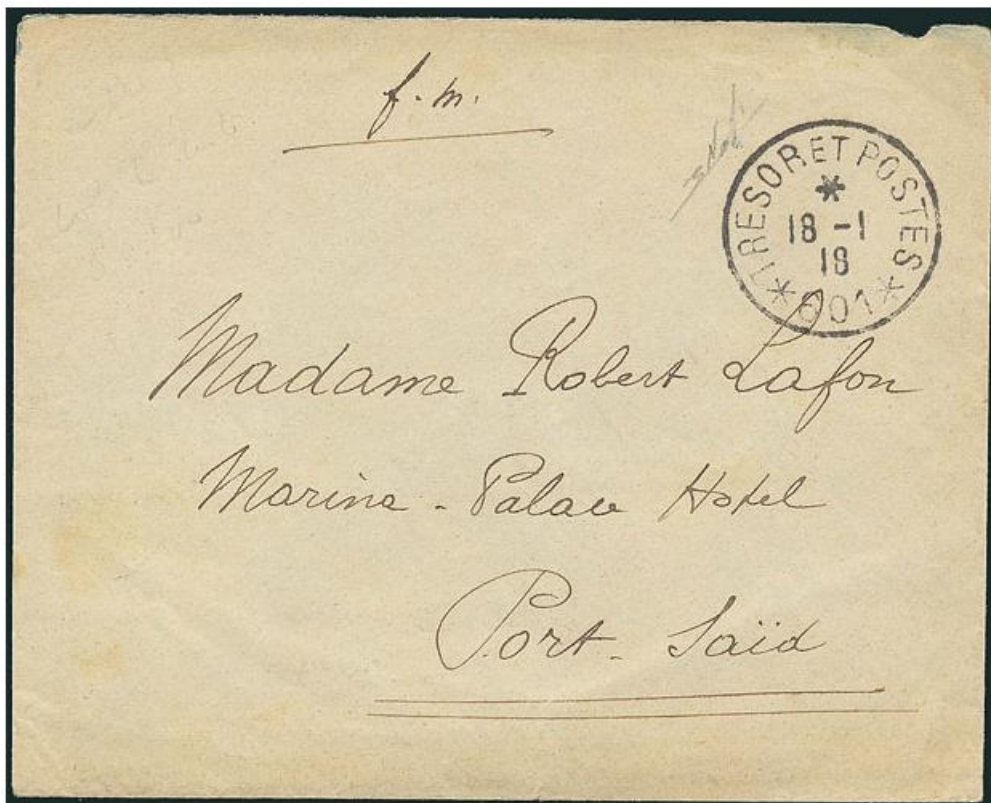 f.m.
TRESOR ET POSTES
18 -1
18
* 601 *
Madame Robert Lafon
Marina - Palace Hotel
Port-Saïd